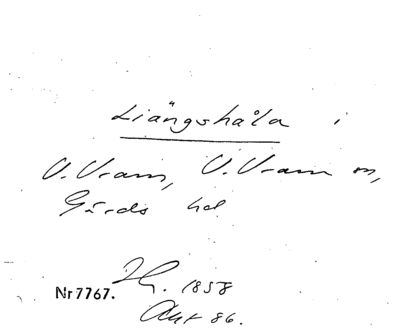 Liängshåla i
V. Vram, V. Vram sn,
Gärds hd
1858
Nr 7767.
Akt 86.